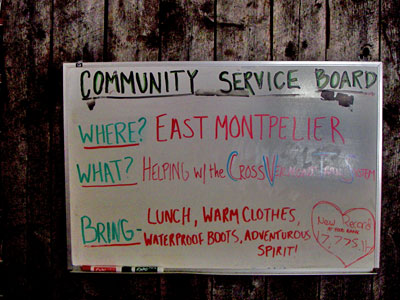 COMMUNITY SERVICE BOARD
WHERE? EAST MONTPELIER
WHAT? HELPING W/ THE CROSS VERMONT TRAIL SYSTEM
BRING- LUNCH, WARM CLOTHES,
WATERPROOF BOOTS, ADVENTUROUS
SPIRIT!
New Record